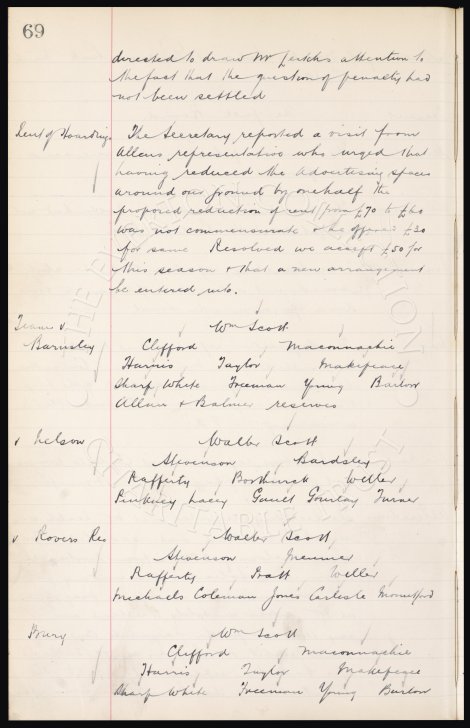 69
directed to draw Mr attention to
the fact that the question of penalty had
not been settled
Rent of Hoardings The Secretary reported a visit from
Allens representative who urged that
having reduced the advertising spaces
around our ground by one half the
proposed reduction of rent from £70 to £60
was not commensurate & he offered £30
for same Resolved we accept £50 for
this season & that a new arrangement
be entered into.
Team v Wm Scott
Barnsley Clifford Maconnachie
Harris Taylor Makepeace
Sharp White Freeman Young Barlow
Allan & Balmer reserves
v Nelson Walter Scott
Stevenson Bardsley
Rafferty Borthwick Weller
Pinkney Lacey Gault Gourlay Turner
v Rovers Res Walter Scott
Stevenson
Rafferty Pratt Weller
Michaels Coleman Jones Carlisle Mountford
Bury Wm Scott
Clifford Maconnachie
Harris Taylor Makepeace
Sharp White Freeman Young Barlow